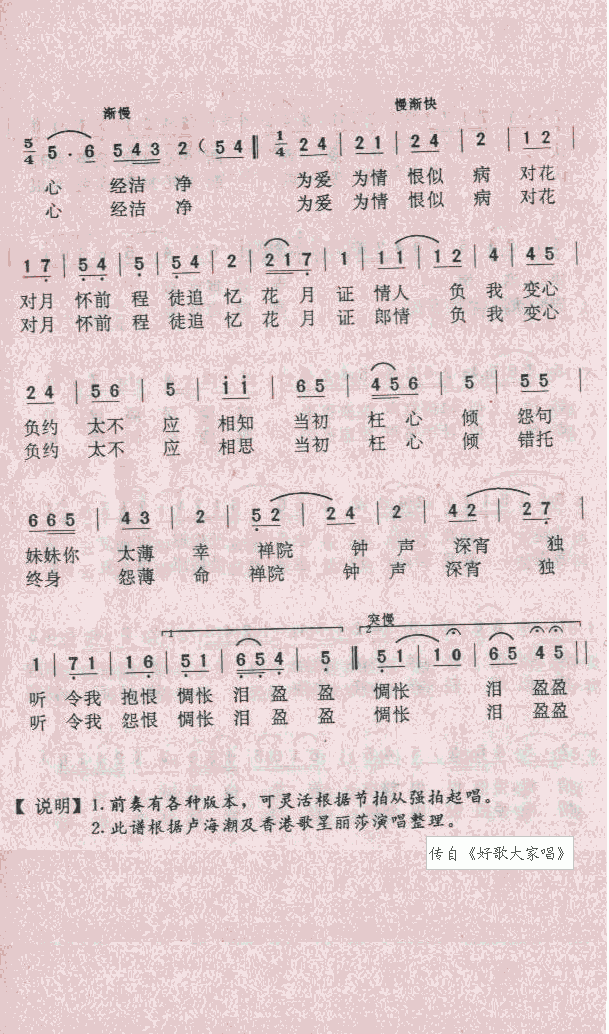 渐慢 慢渐快
5/4 5 · 6 5 4 3 2 ( 5 4 ‖ 1/4 2 4 | 2 1 | 2 4 | 2 | 1 2 |
心 经洁 净 为爱 为情 恨似 病 对花
心 经洁 净 为爱 为情 恨似 病 对花
1 7 | 5 4 | 5 | 5 4 | 2 | 2 1 7 | 1 | 1 1 | 1 2 | 4 | 4 5 |
对月 怀前 程 徒追 忆 花 月 证 情人 负 我 变心
对月 怀前 程 徒追 忆 花 月 证 郎情 负 我 变心
2 4 | 5 6 | 5 | i i | 6 5 | 4 5 6 | 5 | 5 5 |
负约 太不 应 相知 当初 枉 心 倾 怨句
负约 太不 应 相思 当初 枉 心 倾 错托
6 6 5 | 4 3 | 2 | 5 2 | 2 4 | 2 | 4 2 | 2 7 |
妹妹你 太薄 幸 禅院 钟 声 深宵 独
终身 怨薄 命 禅院 钟 声 深宵 独
1 突慢 2
1 | 7 1 | 1 6 | 5 1 | 6 5 4 | 5 ‖ 5 1 | 1 0 | 6 5 4 5 ||
听 令我 抱恨 惆怅 泪 盈 盈 惆怅 泪 盈盈
听 令我 怨恨 惆怅 泪 盈 盈 惆怅 泪 盈盈
【 说明】 1. 前奏有各种版本，可灵活根据节拍从强拍起唱。
2. 此谱根据卢海潮及香港歌星丽莎演唱整理。
传自《好歌大家唱》